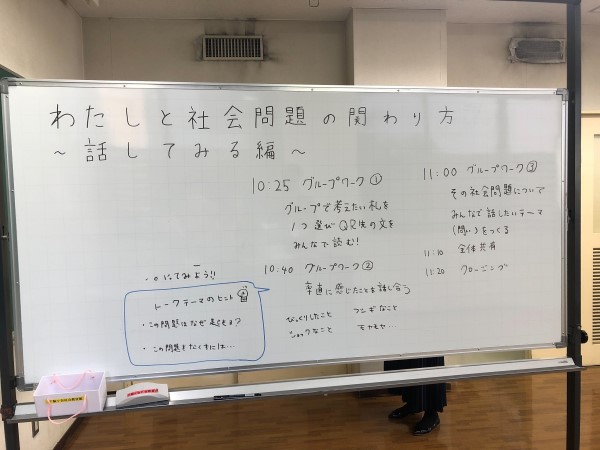 わたしと社会問題の関わり方
~話してみる編~
10:25 グループワーク①
グループで考えたい札を
1つ選びQR先の文を
みんなで読む!
10:40 グループワーク②
率直に感じたことを話し合う
びっくりしたこと フシギなこと
ショックなこと モヤモヤ…
11:00 グループワーク③
その社会問題について
みんなで話したいテーマ
(問い)をつくる
11:10 全体共有
11:20 クロージング
にてみよう!!
トークテーマのヒント
・この問題はなぜ起きる?
・この問題をなくすには…